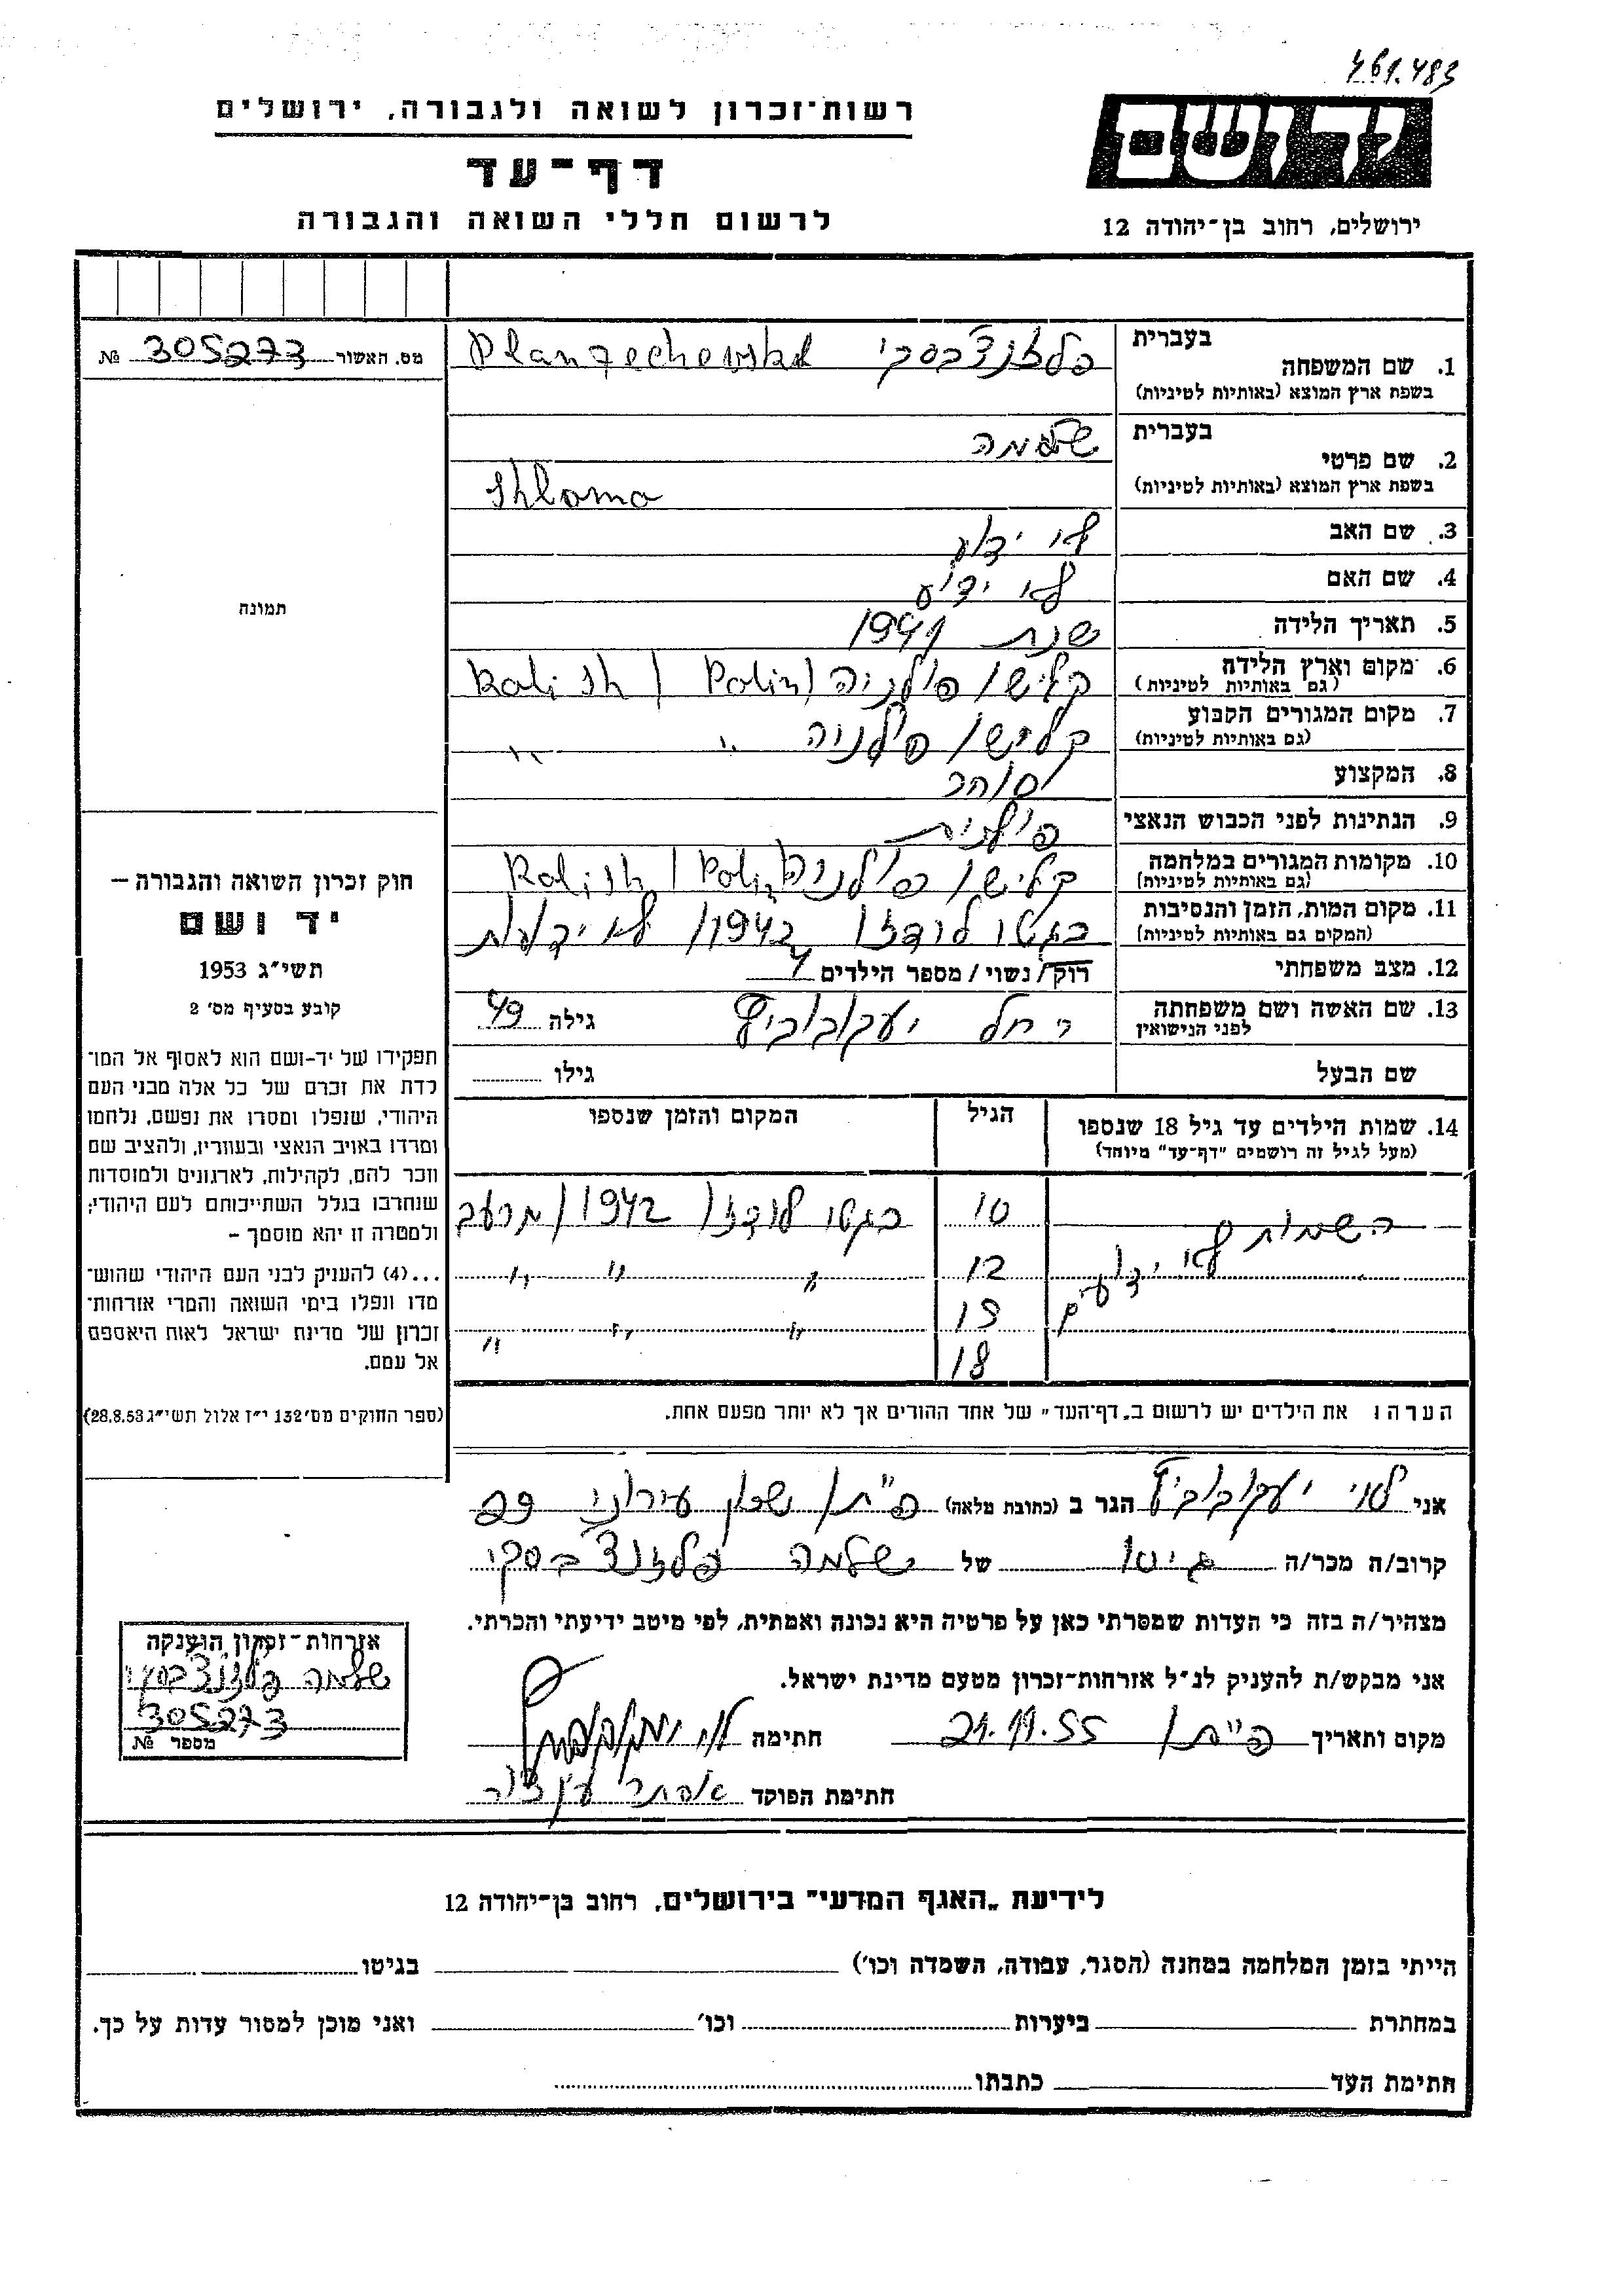 461.483
רשות־זכרון לשואה ולגבורה, ירושלים
דף־עד
לרשום חללי השואה והגבורה
יד ושם
ירושלים, רחוב בן־יהודה 12
מס. האשור 305273 №
תמונה
חוק זכרון השואה והגבורה —
יד ושם
תשי״ג 1953
קובע בסעיף מס׳ 2
תפקידו של יד-ושם הוא לאסוף אל המו־
לדת את זכרם של כל אלה מבני העם
היהודי, שנפלו ומסרו את נפשם, נלחמו
ומרדו באויב הנאצי ובעוזריו, ולהציב שם
וזכר להם, לקהילות, לארגונים ולמוסדות
שנחרבו בגלל השתייכותם לעם היהודי;
ולמטרה זו יהא מוסמך —
...(4) להעניק לבני העם היהודי שהוש־
מדו ונפלו בימי השואה והמרי אזרחות־
זכרון של מדינת ישראל לאות היאספם
אל עמם.
(ספר החוקים מס׳ 132 י״ז אלול תשי״ג 28.8.53)
בעברית
1. שם המשפחה פלזנצ׳בסקי
בשפת ארץ המוצא (באותיות לטיניות)
בעברית שלמה
2. שם פרטי
בשפת ארץ המוצא (באותיות לטיניות) Shlomo
3. שם האב לא ידוע
4. שם האם לא ידוע
5. תאריך הלידה שנת
6. מקום וארץ הלידה קליש/ פולניה / Kalish / Polin
(גם באותיות לטיניות)
7. מקום המגורים הקבוע קליש/ פולניה " "
(גם באותיות לטיניות)
8. המקצוע סוחר
9. הנתינות לפני הכבוש הנאצי פולנית
10. מקומות המגורים במלחמה קליש/ פולניה Kalish / Polin
(גם באותיות לטיניות)
11. מקום המות, הזמן והנסיבות בגטו לודז/ 1942/ לא ידועות
(המקום גם באותיות לטיניות)
12. מצב משפחתי רוק/ נשוי / מספר הילדים 4
13. שם האשה ושם משפחתה רחל יעקובוביץ גילה 49
לפני הנישואין
שם הבעל גילו
14. שמות הילדים עד גיל 18 שנספו הגיל המקום והזמן שנספו
(מעל לגיל זה רושמים ״דף־עד״ מיוחד)
השמות לא ידועים 10 בגטו לודז/ 1942/ מרעב
12 " " "
15 " " "
18 "
הערה: את הילדים יש לרשום ב״דף־העד״ של אחד ההורים אך לא יותר מפעם אחת.
אני לאי יעקובוביץ הגר ב (כתובת מלאה) פ״ת/ שכון עירוני 29
קרוב/ה מכר/ה גיסו של שלמה פלזנצ׳בסקי
מצהיר/ה בזה כי העדות שמסרתי כאן על פרטיה היא נכונה ואמתית, לפי מיטב ידיעתי והכרתי.
אני מבקש/ת להעניק לנ״ל אזרחות־זכרון מטעם מדינת ישראל.
מקום ותאריך פ״ת/ 21.11.55 חתימה
חתימת הפוקד
אזרחות־זכרון הוענקה
שלמה פלזנצ׳בסקי
305273
מספר №
לידיעת ״האגף המדעי״ בירושלים, רחוב בן־יהודה 12
הייתי בזמן המלחמה במחנה (הסגר, עבודה, השמדה וכו׳) בגיטו
במחתרת ביערות וכו׳ ואני מוכן למסור עדות על כך.
חתימת העד כתבתו